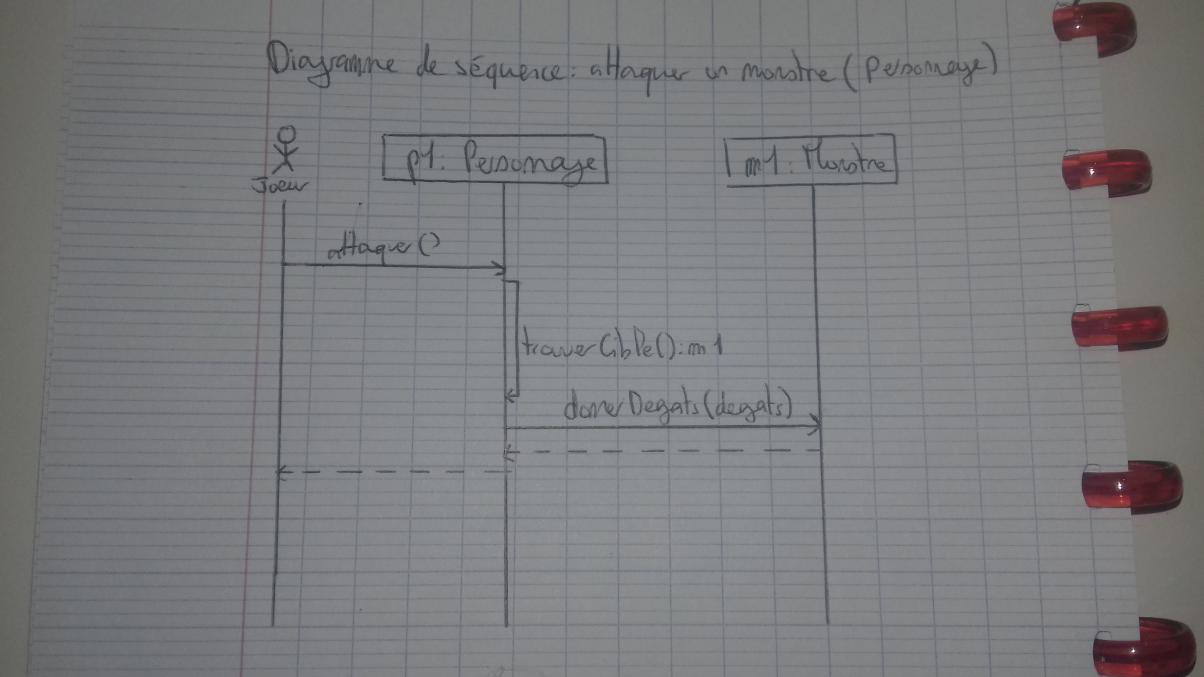 Diagramme de séquence: attaquer un monstre (Personnage)
Joeur
p1: Personnage
m1: Monstre
attaquer()
trouverCible(): m1
donnerDegats(degats)